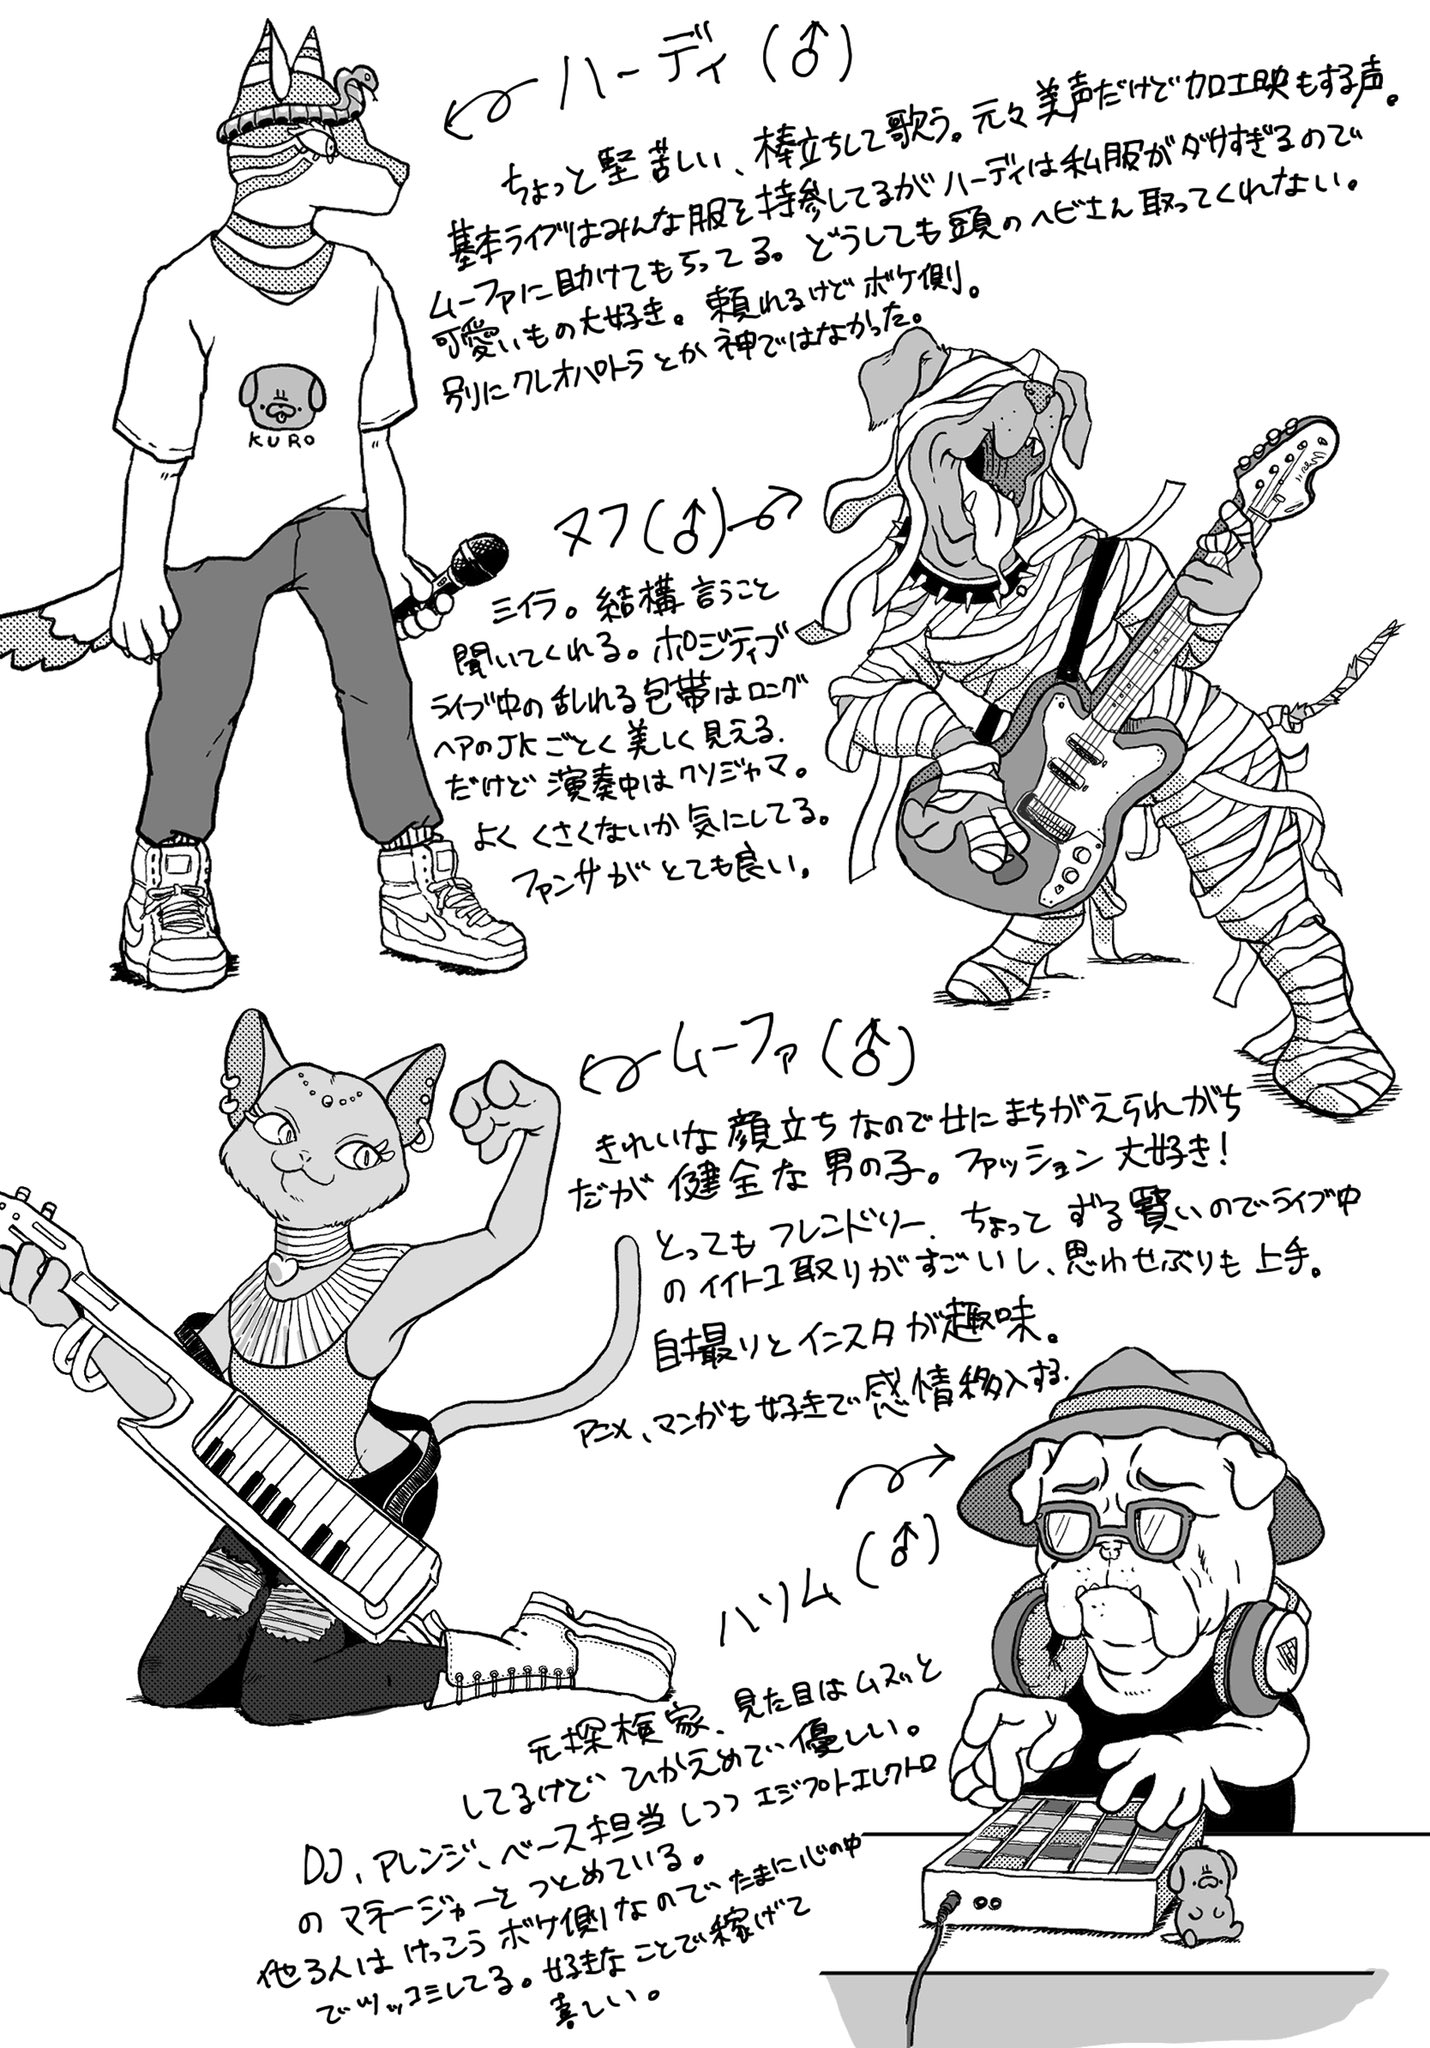 ハーディ(♂)
ちょっと堅苦しい、棒立ちして歌う。元々美声だけど加工映えもする声。
基本ライブはみんな服を持参してるがハーディは私服がダサすぎるので
ムーファに助けてもらってる。どうしても頭のヘビさん取ってくれない。
可愛いもの大好き。頼れるけどボケ側。
別にクレオパトラとか神ではなかった。
KURO
ヌフ(♂)
ミイラ。結構言うこと
聞いてくれる。ポジティブ
ライブ中の乱れる包帯はロング
ヘアのJKごとく美しく見える.
だけど演奏中はクソジャマ。
よくくさくないか気にしてる。
ファンサがとても良い。
ムーファ(♂)
きれいな顔立ちなので女にまちがえられがち
だが健全な男の子。ファッション大好き!
とってもフレンドリー、ちょってずる賢いのでライブ中
のイイトコ取りがすごいし、思わせぶりも上手。
自撮りとインスタが趣味。
アニメ、マンガも好きで感情移入する.
ハソム(♂)
元探検家、見た目はムスッと
してるけどひかえめで優しい。
DJ、アレンジ、ベース担当しつつエジプトエレクトロ
のマネージャーをつとめている。
他3人はけっこうボケ側なのでたまに心の中
でツッコミしてる。好きなことで稼げて
喜しい。